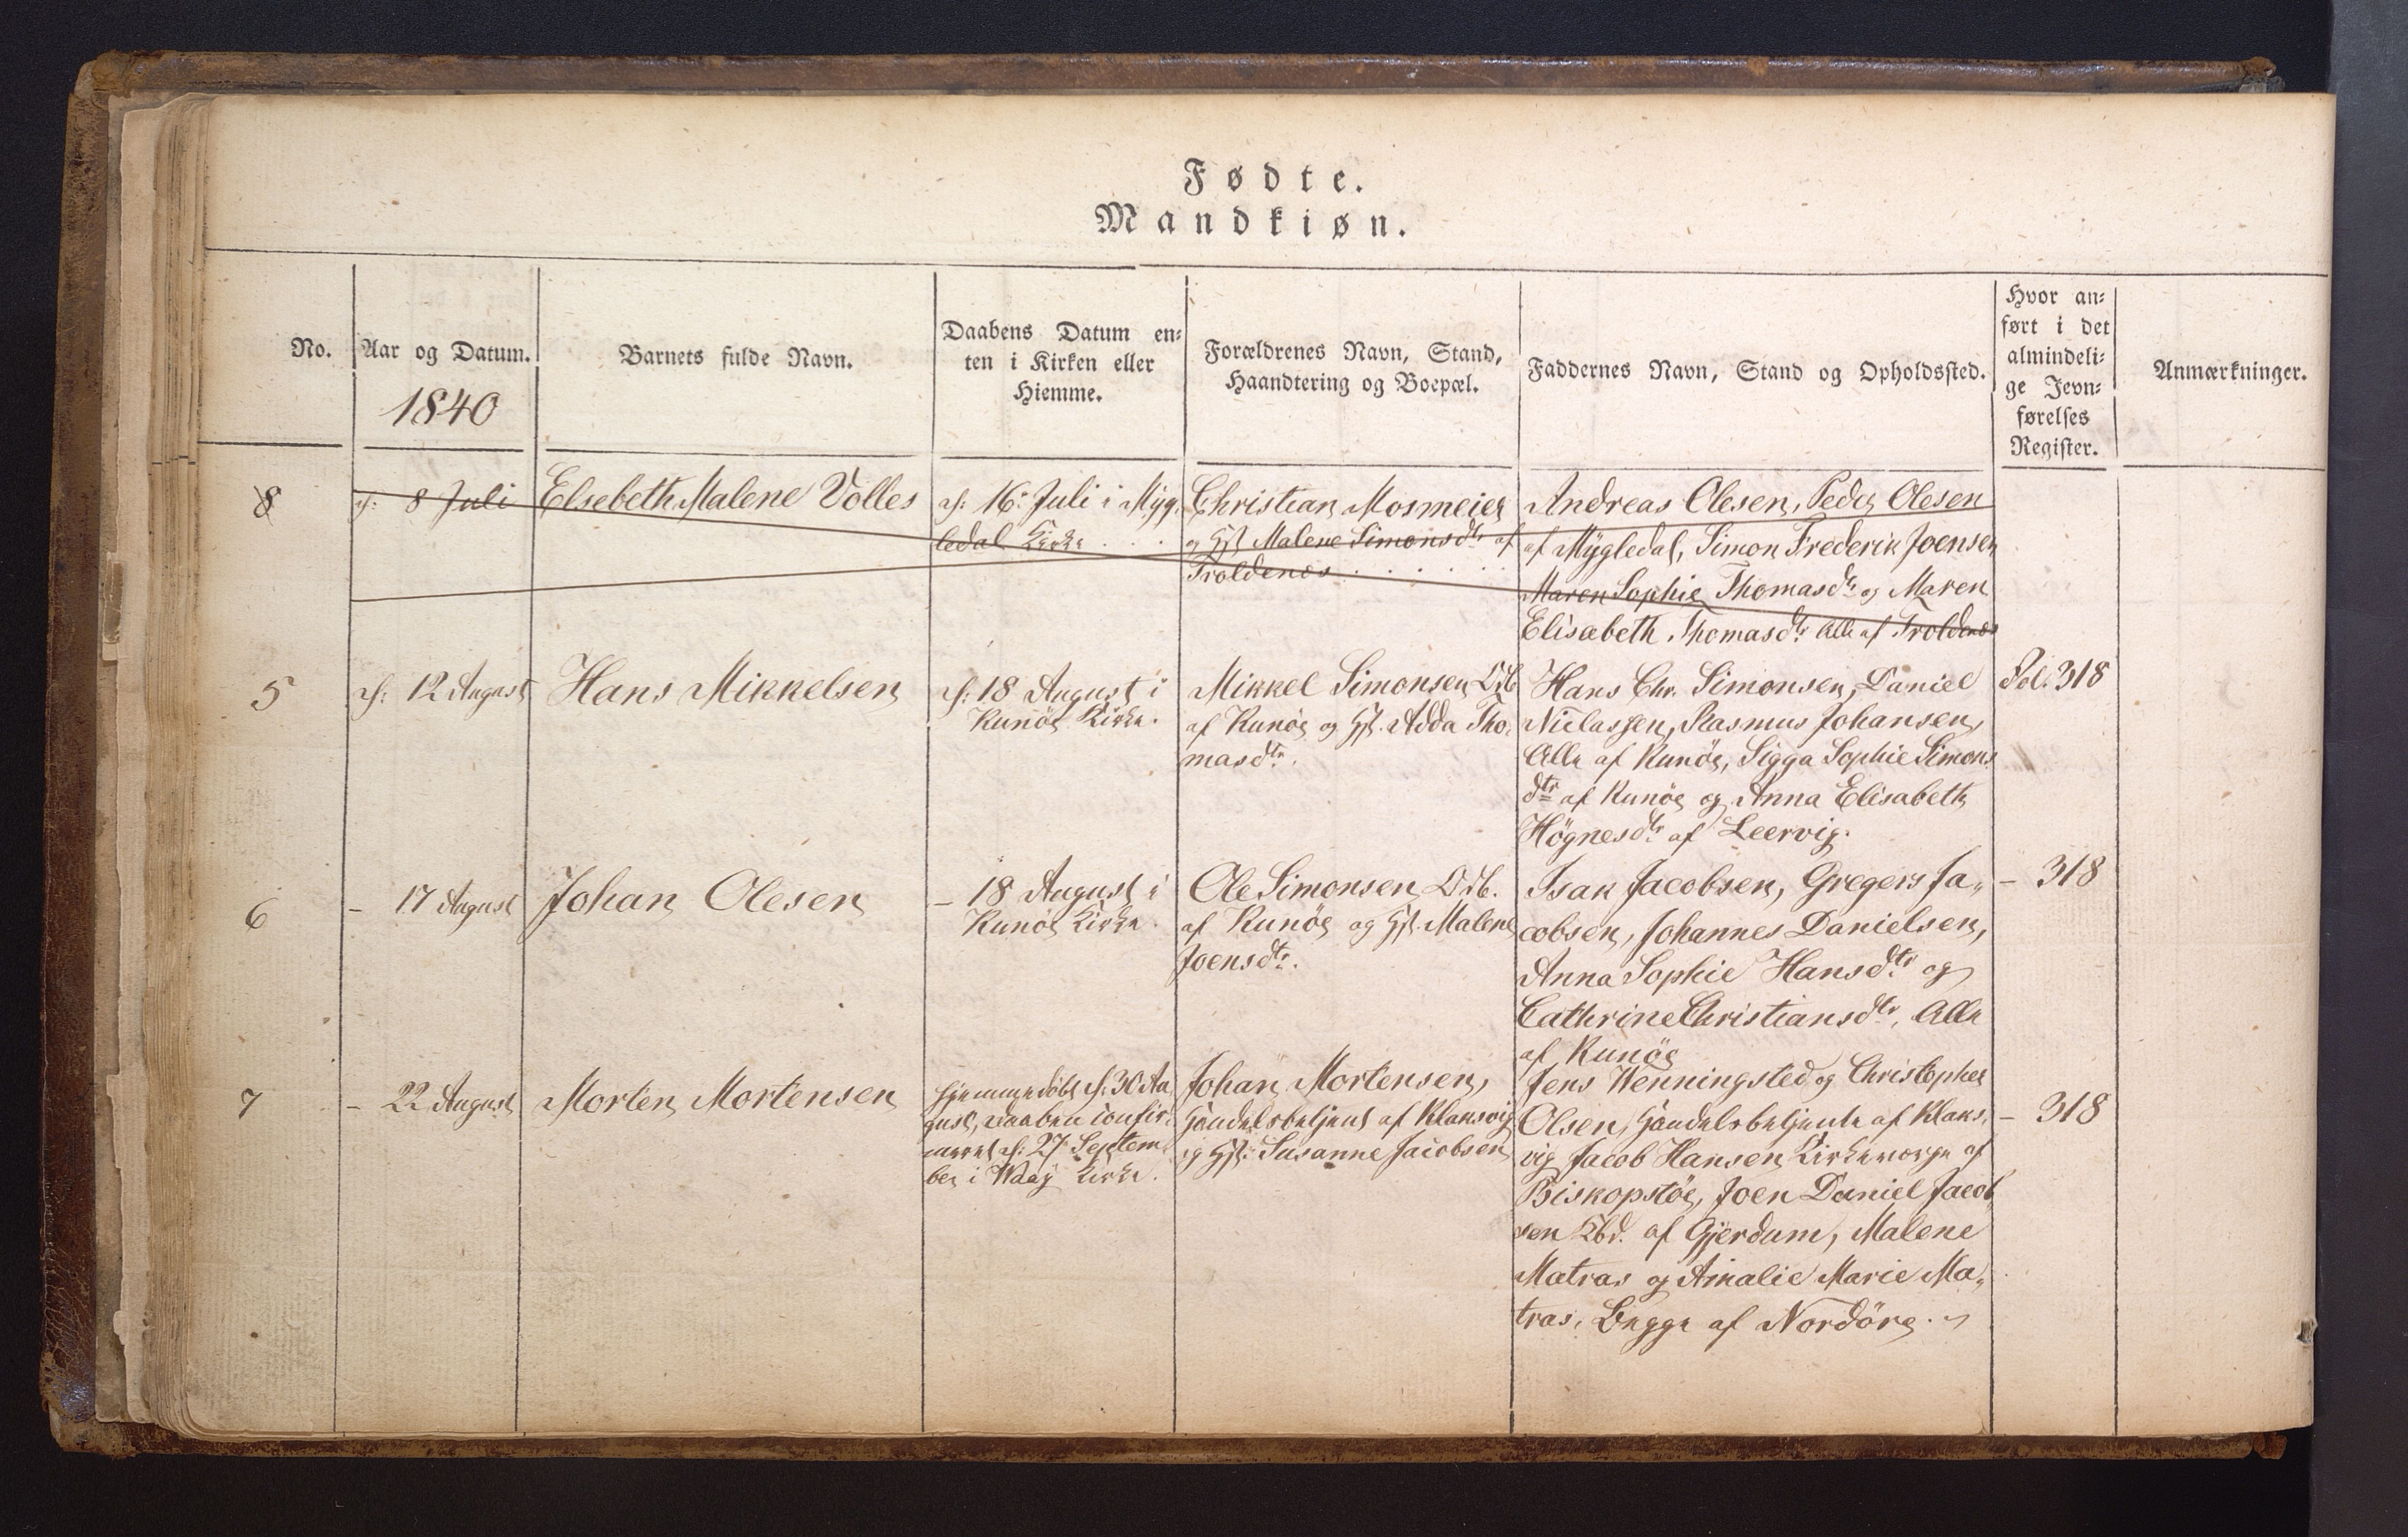 Fødte.
Mandkiøn.
No.
Aar og Datum.
1840
Barnets fulde Navn.
Daabens Datum en-
ten i Kirken eller
Hiemme.
Forældrenes Navn, Stand,
Haandtering og Boepæl.
Faddernes Navn, Stand og Opholdssted.
Hvor an-
ført i det
almindeli-
ge Jevn-
førelses
Register.
Anmærkninger.
8
d: 8 Juli
Elsebeth Malene Volles
d: 16: Juli i Myg-
ledal Kirke . . .
Christian Mosmeier
og Hst Malene Simonsdtr af
Troldenes . . . . . . .
Andreas Olesen, Peder Olesen
af Mygledal, Simon Frederik Joensen
Maren Sophie Thomasdtr og Maren
Elisabeth Thomasdtr Alle af Troldenes
5
d: 12 August
Hans Mikkelsen
d: 18 August i
Kunöe Kirke.
Mikkel Simonsen Odb
af Kunöe og Hst. Adda Tho-
masdtr.
Hans Chr. Simonsen, Daniel
Niclassen, Rasmus Johansen,
Alle af Kunöe, Sigga Sophie Simons
dtr af Kunöe og Anna Elisabeth
Högnesdtr af Leervig.
Fol. 318
6
– 17 August
Johan Olesen
– 18 August i
Kunöe Kirke.
Ole Simonsen Odb.
af Kunöe og Hst. Malene
Joensdtr.
Isak Jacobsen, Gregers Ja-
cobsen, Johannes Danielsen,
Anna Sophie Hansdtr og
Cathrine Christiansdtr, Alle
af Kunöe
– 318
7
– 22 August
Morten Mortensen
hjemmedöbt d: 30 Au
gust, Daaben confir-
meret d: 27 Septem-
ber i Waag Kirke.
Johan Mortensen,
Handelsbetjent af Klaksvig
og Hst: Susanne Jacobsen
Jens Wenningsted og Christopher
Olsen, Handelsbetjente af Klaks-
vig Jacob Hansen Kirkeverge af
Biskopstöe, Joen Daniel Jacob
sen Kbd. af Gjerdum, Malene
Matras og Amalie Marie Ma-
tras, Begge af Nordöre.
– 318